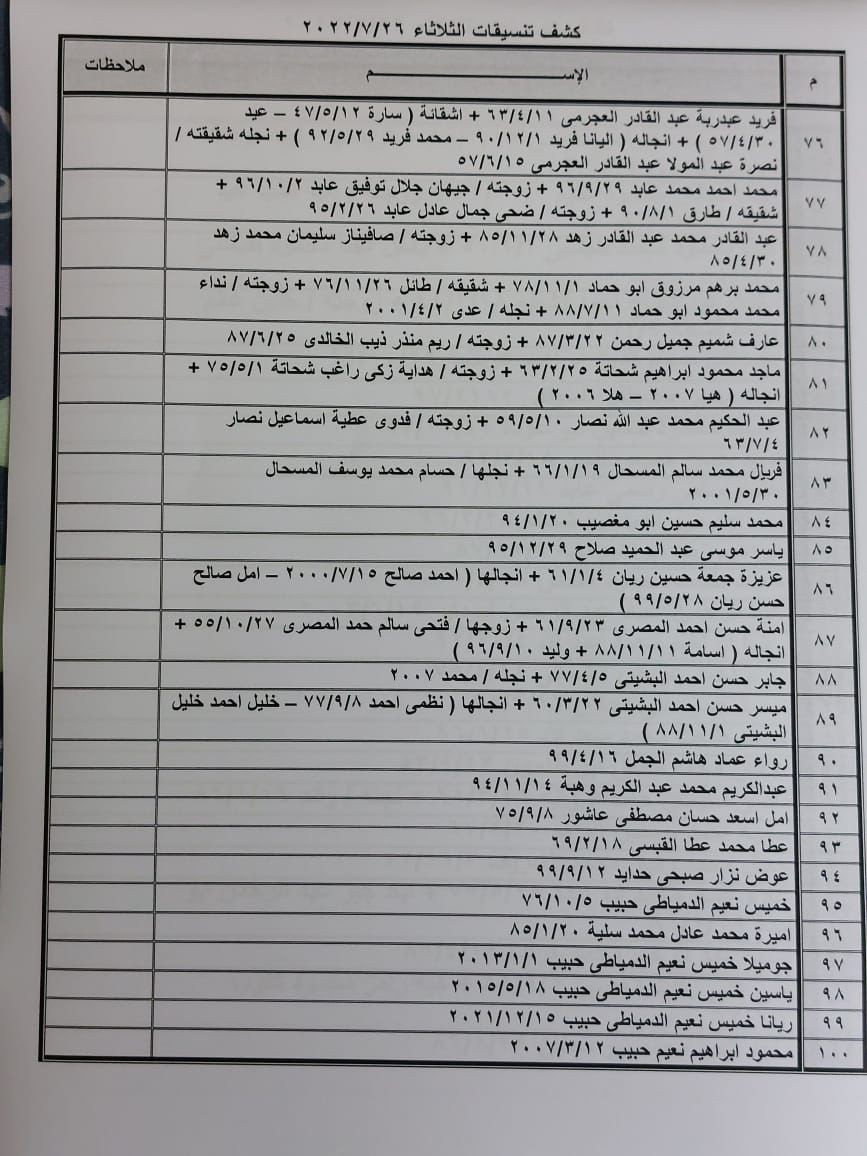 كشف تنسيقات الثلاثاء ٢٠٢٢/٧/٢٦
م الإســـــــــم ملاحظات
فريد عبدربة عبد القادر العجرمى ٦٣/٤/١١ + اشقائة ( سارة ٤٧/٥/١٢ – عيد
٧٦ ٥٧/٤/٣٠ ) + انجاله ( اليانا فريد ٩٠/١٢/١ – محمد فريد ٩٢/٥/٢٩ ) + نجله شقيقته /
نصرة عبد المولا عبد القادر العجرمى ٥٧/٦/١٥
٧٧ محمد احمد محمد عابد ٩٦/٩/٢٩ + زوجته / جيهان جلال توفيق عابد ٩٦/١٠/٢ +
شقيقه / طارق ٩٠/٨/١ + زوجته / ضحى جمال عادل عابد ٩٥/٢/٢٦
٧٨ عبد القادر محمد عبد القادر زهد ٨٥/١١/٢٨ + زوجته / صافيناز سليمان محمد زهد
٨٥/٤/٣٠
٧٩ محمد برهم مرزوق ابو حماد ٧٨/١١/١ + شقيقه / طائل ٧٦/١١/٢٦ + زوجته / نداء
محمد محمود ابو حماد ٨٨/٧/١١ + نجله / عدى ٢٠٠١/٤/٢
٨٠ عارف شميم جميل رحمن ٨٧/٣/٢٢ + زوجته / ريم منذر ذيب الخالدى ٨٧/٦/٢٥
٨١ ماجد محمود ابراهيم شحاتة ٦٣/٢/٢٥ + زوجته / هداية زكى راغب شحاتة ٧٥/٥/١ +
انجاله ( هيا ٢٠٠٧ – هلا ٢٠٠٦ )
٨٢ عبد الحكيم محمد عبد الله نصار ٥٩/٥/١٠ + زوجته / فدوى عطية اسماعيل نصار
٦٣/٧/٤
٨٣ فريال محمد سالم المسحال ٦٦/١/١٩ + نجلها / حسام محمد يوسف المسحال
٢٠٠١/٥/٣٠
٨٤ محمد سليم حسين ابو مغصيب ٩٤/١/٢٠
٨٥ ياسر موسى عبد الحميد صلاح ٩٥/١٢/٢٩
٨٦ عزيزة جمعة حسين ريان ٦١/١/٤ + انجالها ( احمد صالح ٢٠٠٠/٧/١٥ – امل صالح
حسن ريان ٩٩/٥/٢٨ )
٨٧ امنة حسن احمد المصرى ٦١/٩/٢٣ + زوجها / فتحى سالم حمد المصرى ٥٥/١٠/٢٧ +
انجاله ( اسامة ٨٨/١١/١١ + وليد ٩٦/٩/١٠ )
٨٨ جابر حسن احمد البشيتى ٧٧/٤/٥ + نجله / محمد ٢٠٠٧
٨٩ ميسر حسن احمد البشيتى ٦٠/٣/٢٢ + انجالها ( نظمى احمد ٧٧/٩/٨ – خليل احمد خليل
البشيتى ٨٨/١١/١ )
٩٠ رواء عماد هاشم الجمل ٩٩/٤/١٦
٩١ عبدالكريم محمد عبد الكريم وهبة ٩٤/١١/١٤
٩٢ امل اسعد حسان مصطفى عاشور ٧٥/٩/٨
٩٣ عطا محمد عطا القبسى ٦٩/٢/١٨
٩٤ عوض نزار صبحى حدايد ٩٩/٩/١٢
٩٥ خميس نعيم الدمياطى حبيب ٧٦/١٠/٥
٩٦ اميرة محمد عادل محمد سلية ٨٥/١/٢٠
٩٧ جوميلا خميس نعيم الدمياطى حبيب ٢٠١٣/١/١
٩٨ ياسين خميس نعيم الدمياطى حبيب ٢٠١٥/٥/١٨
٩٩ ريانا خميس نعيم الدمياطى حبيب ٢٠٢١/١٢/١٥
١٠٠ محمود ابراهيم نعيم حبيب ٢٠٠٧/٣/١٢